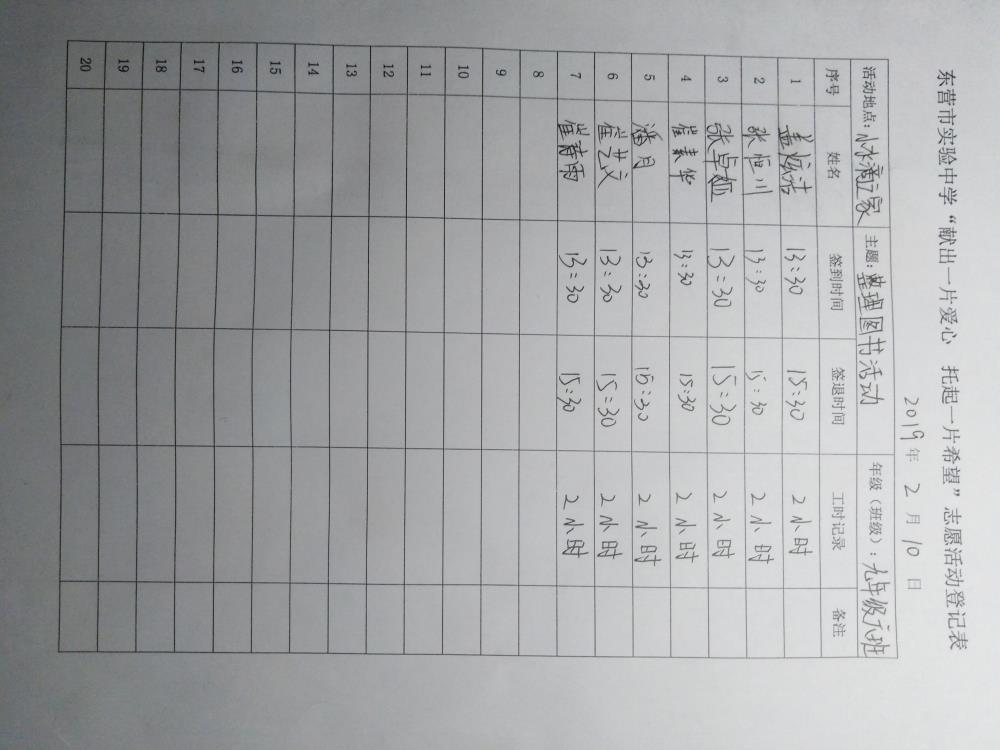 东营市实验中学“献出一片爱心 托起一片希望”志愿活动登记表
2019年 2 月 10 日
活动地点：小水滴之家 主题：整理图书活动 年级（班级）：九年级六班
序号 姓名 签到时间 签退时间 工时记录 备注
1 盖炫浩 13:30 15:30 2小时
2 张恒川 13:30 15:30 2小时
3 张卓娅 13:30 15:30 2小时
4 崔素华 13:30 15:30 2小时
5 潘月 13:30 15:30 2小时
6 崔艺文 13:30 15:30 2小时
7 崔靖雨 13:30 15:30 2小时
8
9
10
11
12
13
14
15
16
17
18
19
20